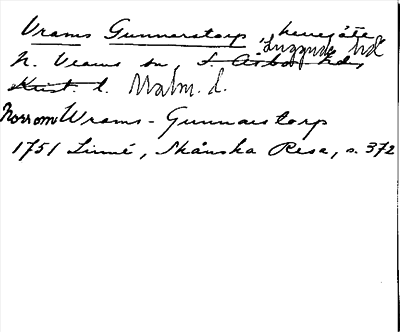 Vrams Gunnarstorp, herregäte
Luggude hd
N. Vrams sn, S. Åsbo hd,
Krist. l. Malm. l.
Norrom Wrams-Gunnarstorp
1751 Linné, Skånska Resa, s. 372